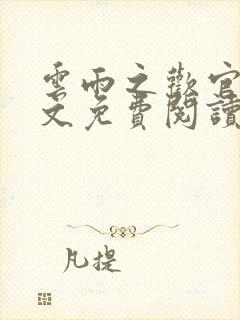 雲雨之歡官
文免費閱讀
凡提